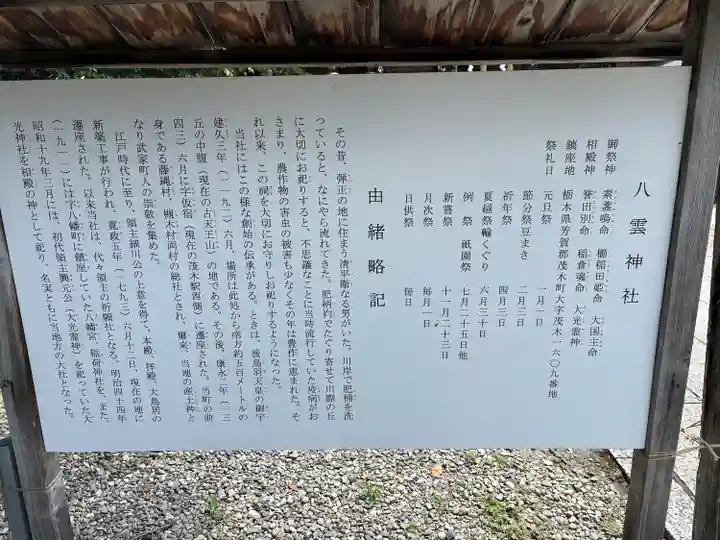 八雲神社
御祭神 素盞嗚命 櫛稲田姫命 大国主命
相殿神 誉田別命 稲倉魂命 大光霊神
鎮座地 栃木県芳賀郡茂木町大字茂木一六〇九番地
祭礼日 元旦祭 一月一日
節分祭豆まき 二月三日
祈年祭 四月三日
夏越祭輪くぐり 六月三十日
例祭 祇園祭 七月二十五日他
新嘗祭 十一月二十三日
月次祭 毎月一日
日供祭 毎日
由緒略記
その昔、弾正の地に住まう清平衛なる男がいた。川岸で肥桶を洗
っていると、なにやら流れてきた。肥柄杓でたぐり寄せて川際の丘
に大切にお祀りすると、不思議なことに当時流行していた疫病がお
さまり、農作物の害虫の被害も少なくその年は豊作に恵まれた。そ
れ以来、この祠を大切にお守りしお祀りするようになった。
当社にはこの様な創始の伝承がある。ときは、後鳥羽天皇の御宇
建久三年(一一九二)六月、場所は此処から南方約五百メートルの
丘の中腹(現在の古天王山)の地である。その後、康永二年(一三
四三)六月に字仮宿(現在の茂木駅西側)に遷座された。当町の前
身である藤縄村、槻木村両村の総社とされ、爾来、当地の産土神と
なり武家町人の崇敬を集めた。
江戸時代に至り、領主細川公の上意を得て、本殿、拝殿、大鳥居の
新築工事が行われ、寛政五年(一七九三)六月十二日、現在の地に
遷座された。以来当社は、代々領主の祈願社となる。明治四十四年
(一九一一)には字八幡町に鎮座していた八幡宮、稲荷神社を、また、
昭和十九年三月には、初代領主興元公(大光霊神)を祀っていた大
光神社を相殿の神として祀り、名実ともに当地方の大社となった。